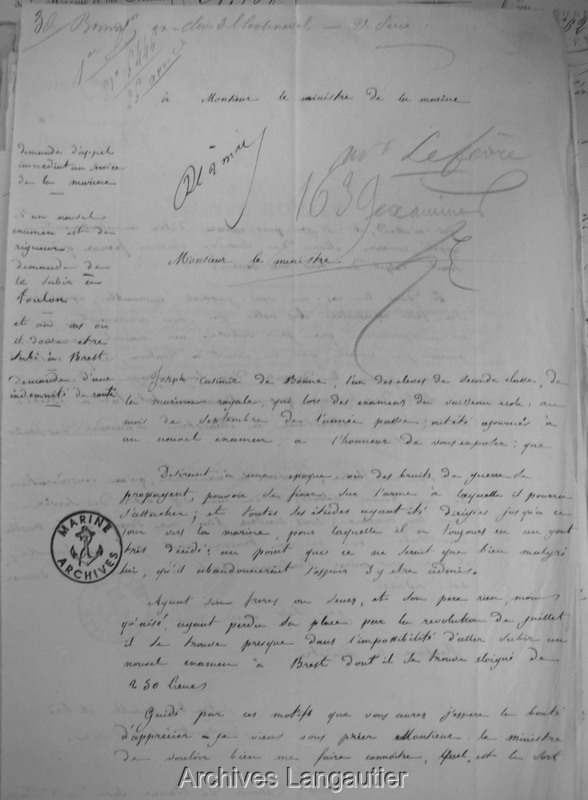 à Monsieur le ministre de la marine
demande d'appel
immédiat au service
de la marine
Si un nouvel
examen est de
rigueur
demande de
le subir à
Toulon
et au cas où
il doive etre
subi à Brest
demande d'une
indemnité de route
Mr Lefèvre
1639 examiner
Monsieur le ministre
Joseph Casimir de Bonne, l'un des eleves de seconde classe, de
la marine royale, qui lors des examens du vaisseau ecole, au
mois de septembre de l'année passée, ont été ajournés à
un nouvel examen, a l'honneur de vous exposer, que
Désirant à une epoque où des bruits de guerre se
propagent, pouvoir se fixer sur l'arme à laquelle il pourra
s'attacher, et toutes ses études ayant été dirigées jusqu'à ce
jour vers la marine, pour laquelle il a toujours eu un gout
très décidé; au point que ce ne serait que bien malgré
lui, qu'il abandonnerait l'espoir d'y etre admis.
MARINE
ARCHIVES
Ayant six freres ou seurs, et son pere rien moins
qu'aisé, ayant perdu sa place par la revolution de juillet
il se trouve presque dans l'impossibilité d'aller subir un
nouvel examen à Brest dont il se trouve eloigné de
250 lieues
Guidé par ces motifs que vous aurez j'espere la bonté
d'apprécier je viens vous prier Monsieur le ministre
de vouloir bien me faire connoitre, quel est le sort
Archives Langautier